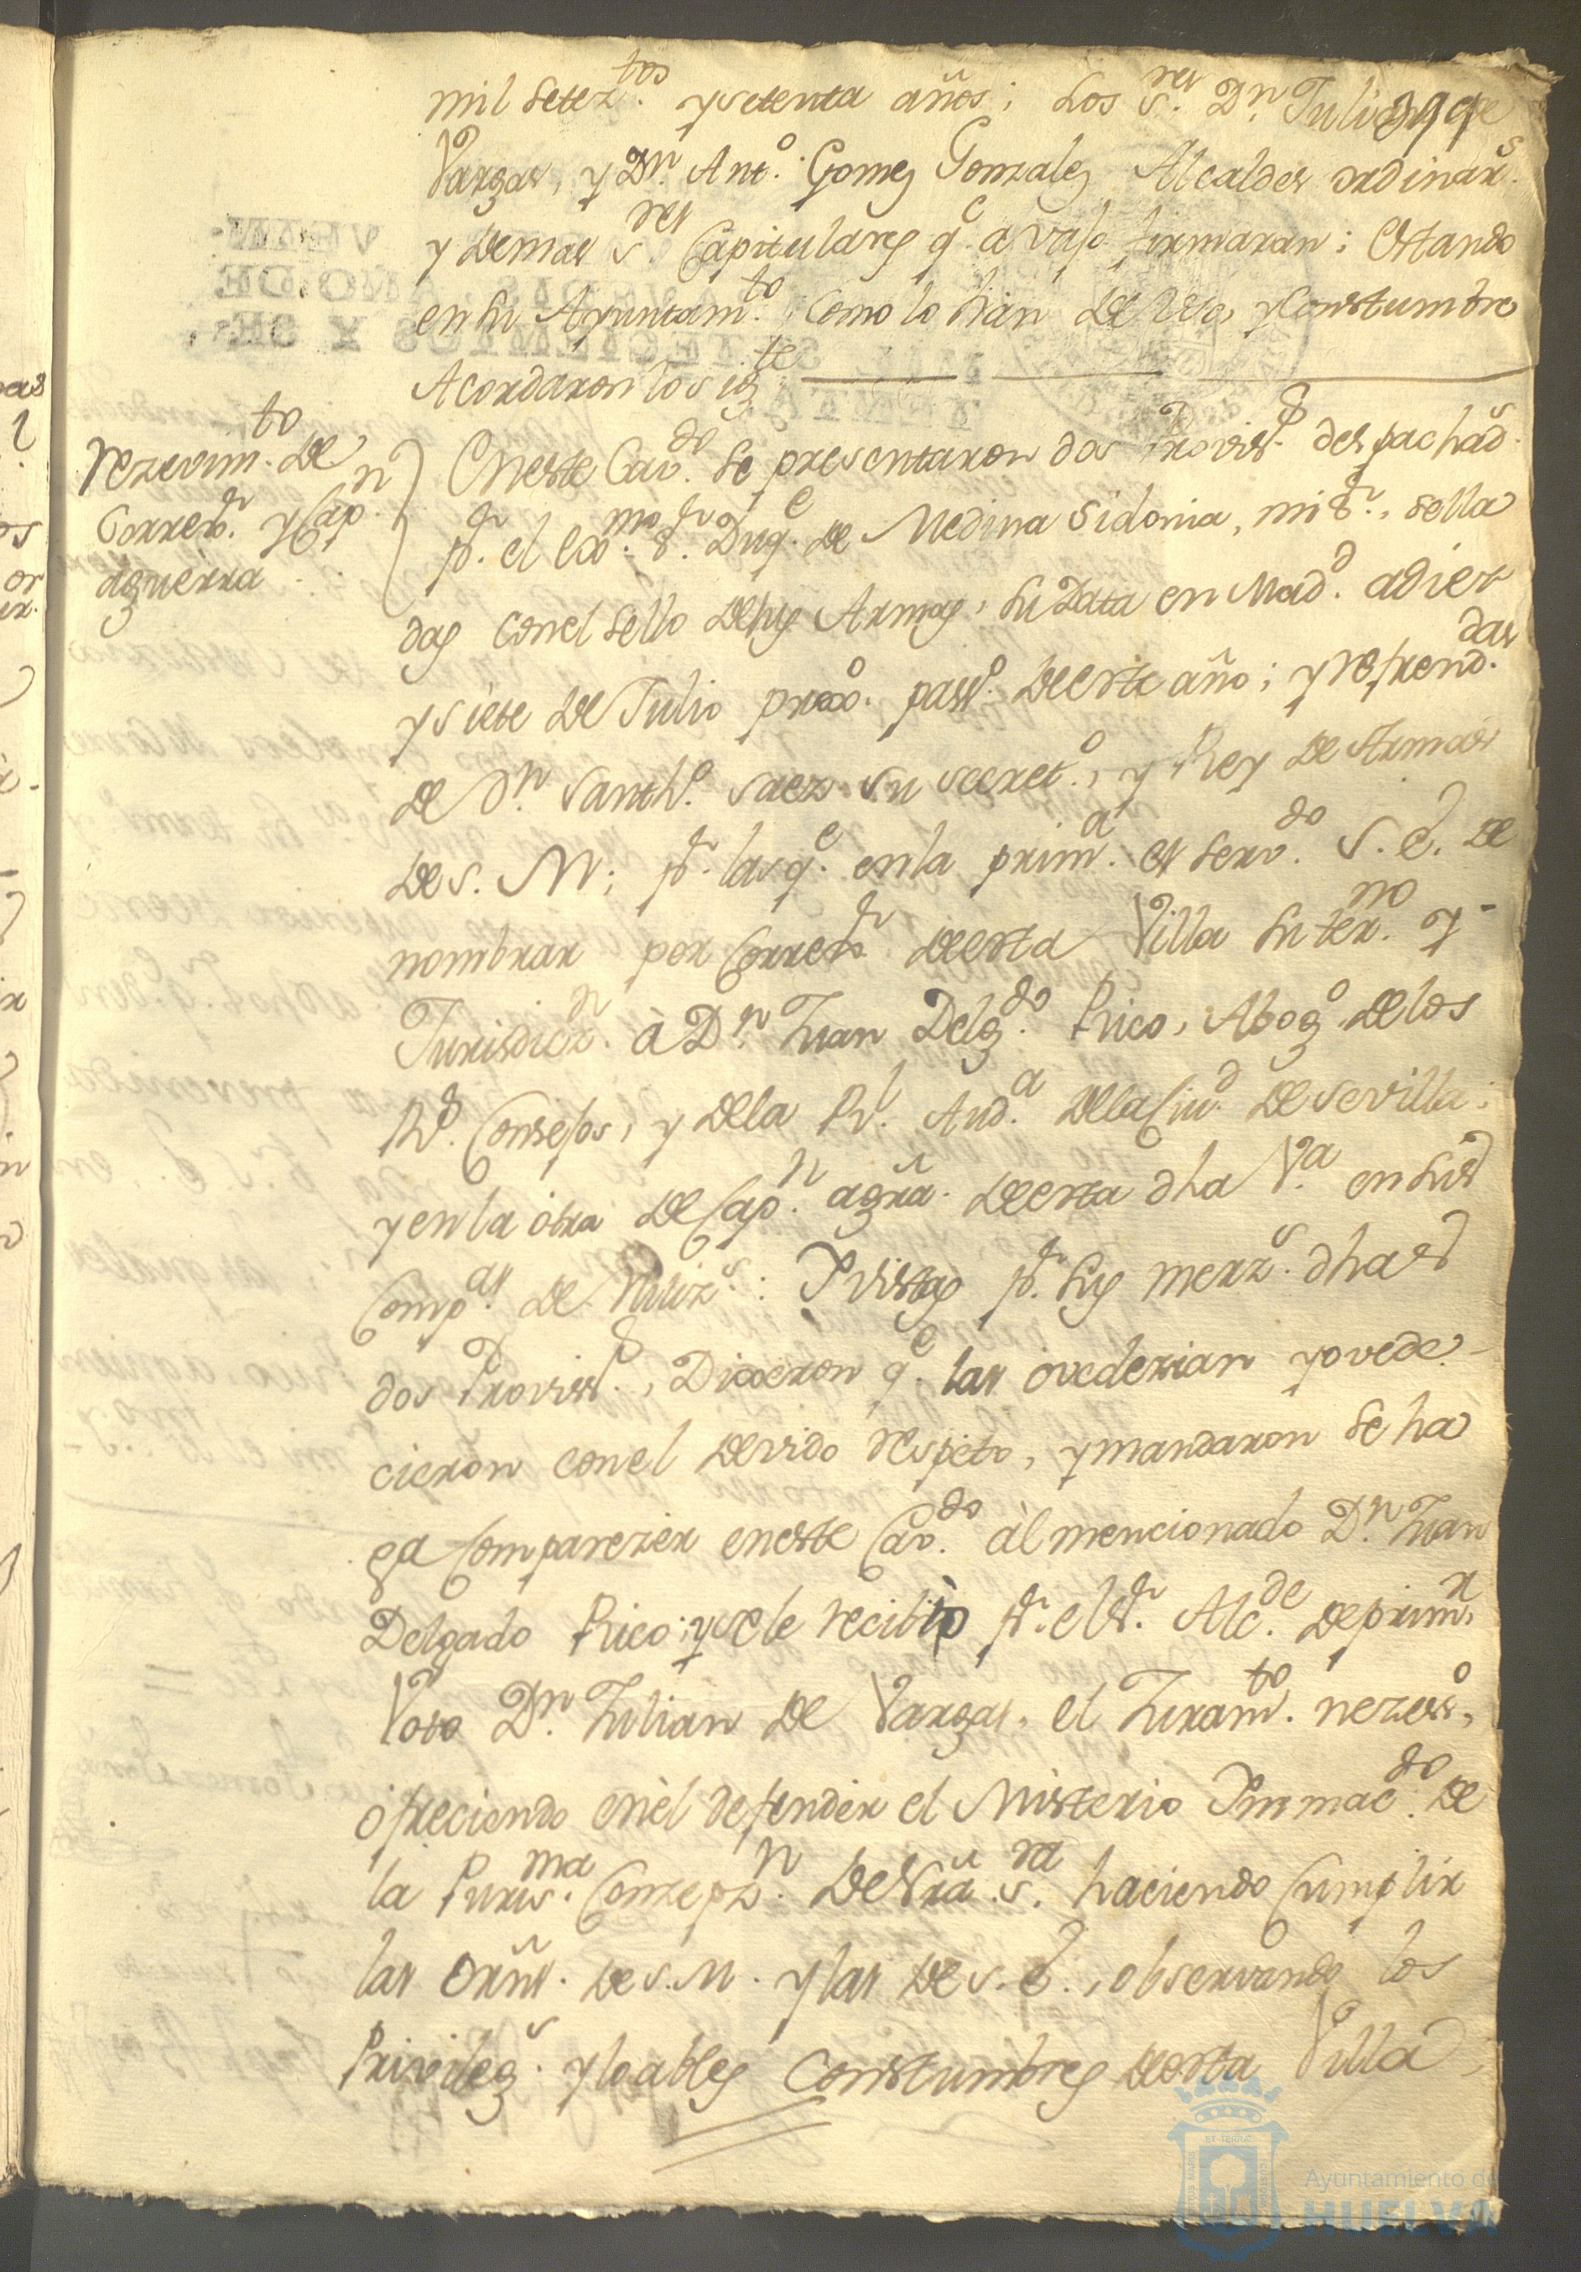 mil Setez.tos ysetenta años; Los S.res D.n Julian de
399
Vargas, y D.n Ant.o Gomez Gonzalez Alcaldes ordinar.s
y demas S.res Capitulares q.e avajo firmaran; Estando
en su Ayuntam.to como lo han de Uso, y Constumbre
Acordaron lo sig.te
rezevim.to de
Correx.r y Cap.n
aguerra
Eneste Cav.do Se presentaron dos Provis.s despachad.s
p.r el Exmo S.r Duq.e de Medina Sidonia, mi S.r, sella
das conel Sello desus Armas, su Data en Mad.d adiez
ysiete de Julio proxo. pass.o deeste año; y refrend.das
de D.n Santh.o Saez su secret.o, y Rey de Armas
de S. M; p.r las q.e enla prim.a es serv.do S. E. de
nombrar por Correx.r deesta Villa su term.no y
Jurisdicz.n à D.n Juan Delg.do Rico, Abog.o delos
R.s Consejos, y dela R.l Aud.a dela Ciu.d de Sevilla;
yenla otra de Cap.n agrã. deesta dha V.a en sus
Comp.as de Miliz.s: Y vistas p.r sus merz.s dhas
dos Proviss.s, Dixeron q.e las ovedezian yovede-
cieron conel devido respeto, ymandaron se ha
ga Comparezer eneste Cav.do àl mencionado D.n Juan
Delgado Rico; ysele recibiò p.r el S.r Alc.de deprim.r
Voto D.n Julian de Vargas, el Juram.to nezess.o,
ofreciendo enèl defender el Misterio Ynmac.do de
la Puris.ma Conzepz.n deNrã S.ra haciendo Cumplir
las Orñs. de S. M. ylas de S. E., observando los
Privileg.s yloables Constumbres deesta Villa;
Ayuntamiento de
HUELVA